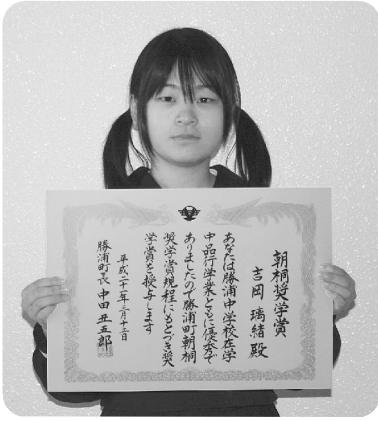 朝桐奨学賞
吉岡 璃緒 殿
あなたは勝浦中学校在学
中品行学業ともに優秀で
ありましたので勝浦町朝桐
奨学賞規程にもとづき奨
学賞を授与します
平成二十一年三月十二日
勝浦町長 中田丑五郎